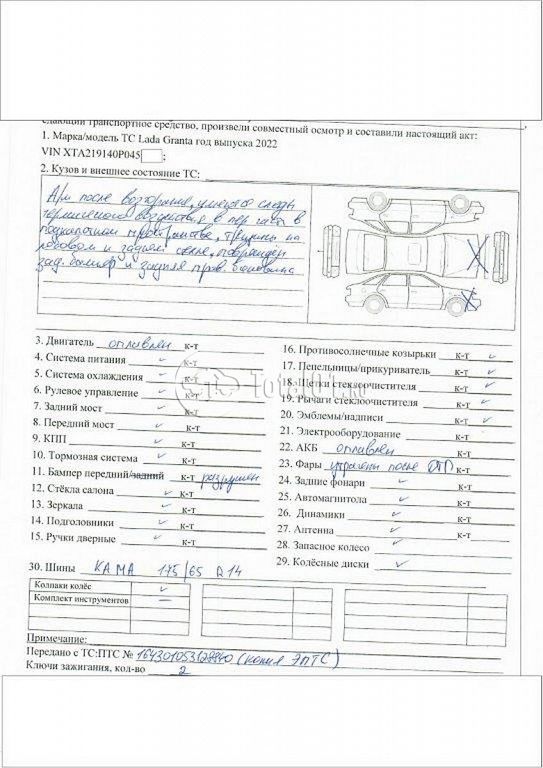 сдающий транспортное средство, произвели совместный осмотр и составили настоящий акт:
1. Марка/модель ТС Lada Granta год выпуска 2022
VIN XTA219140P045 ;
2. Кузов и внешнее состояние ТС:
А/м после возгорания, имеются следы
термического воздействия в пер. части в
подкапотном пространстве, трещины на
лобовом и заднем стекле, поврежден
зад. бампер и задняя прав. боковина
3. Двигатель оплавлен к-т
4. Система питания к-т
5. Система охлаждения к-т
6. Рулевое управление к-т
7. Задний мост к-т
8. Передний мост к-т
9. КПП к-т
10. Тормозная система к-т
11. Бампер передний/задний к-т разрушен
12. Стёкла салона к-т
13. Зеркала к-т
14. Подголовники к-т
15. Ручки дверные к-т
16. Противосолнечные козырьки к-т
17. Пепельницы/прикуриватель к-т
18. Щетки стеклоочистителя к-т
19. Рычаги стеклоочистителя к-т
20. Эмблемы/надписи к-т
21. Электрооборудование к-т
22. АКБ оплавлен к-т
23. Фары утрачены после ДТП к-т
24. Задние фонари к-т
25. Автомагнитола к-т
26. Динамики к-т
27. Антенна к-т
28. Запасное колесо
29. Колёсные диски
30. Шины КАМА 175/65 R14
Колпаки колёс
Комплект инструментов
Примечание:
Передано с ТС:ПТС № (копия ЭПТС)
Ключи зажигания, кол-во 2